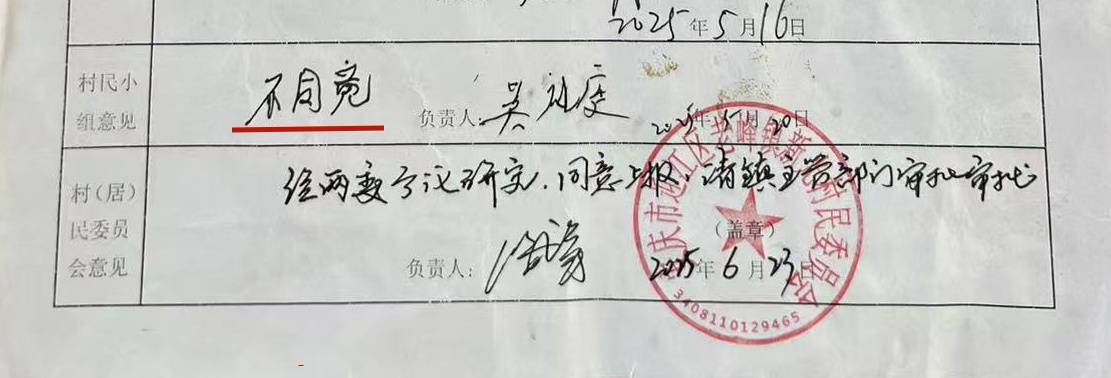 2025年5月16日
村民小组意见
不同意
负责人:吴
2025年5月20日
村(居)民委员会意见
经两委会议研究,同意上报,请镇主管部门审批
(盖章)
负责人:
2025年6月23日
庆市迎江区老峰镇新村民委员会
3408110129465